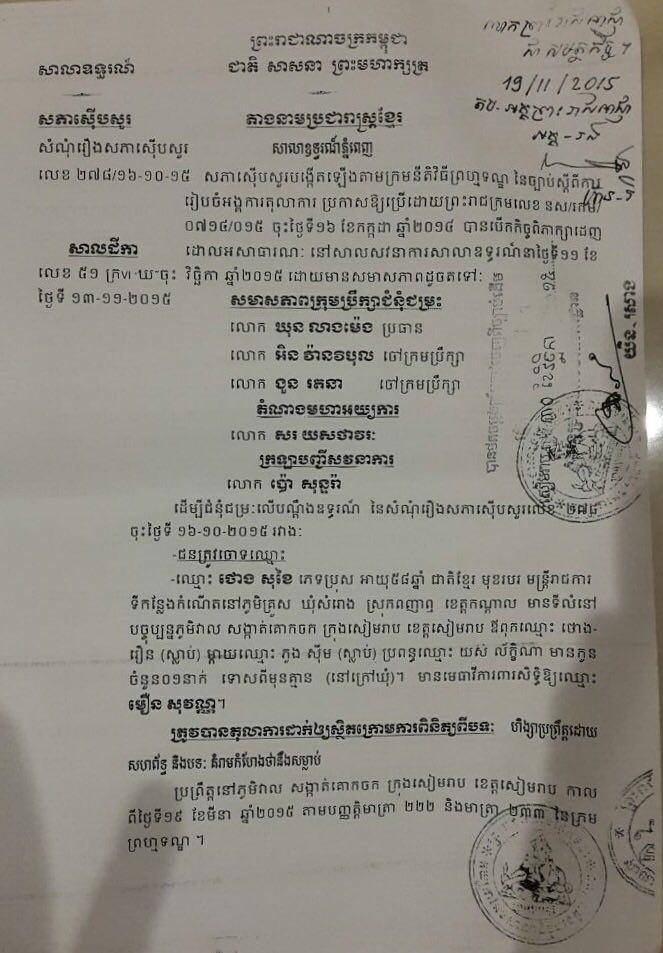 ព្រះរាជាណាចក្រកម្ពុជា
សាលាឧទ្ធរណ៍ ជាតិ សាសនា ព្រះមហាក្សត្រ
19/11/2015
សភាស៊ើបសួរ តាងនាមប្រជារាស្ត្រខ្មែរ
សំណុំរឿងសភាស៊ើបសួរ សាលាឧទ្ធរណ៍ភ្នំពេញ
លេខ ២៧៨/១៦-១០-១៥ សភាស៊ើបសួរបង្កើតឡើងតាមក្រមនីតិវិធីព្រហ្មទណ្ឌ នៃច្បាប់ស្តីពីការ
រៀបចំអង្គការតុលាការ ប្រកាសឱ្យប្រើដោយព្រះរាជក្រមលេខ នស/រកម/
០៧១៤/០១៥ ចុះថ្ងៃទី១៦ ខែកក្កដា ឆ្នាំ២០១៤ បានបើកកិច្ចពិភាក្សាដេញ
សាលដីកា ដោលអសាធារណៈ នៅសាលសវនាការសាលាឧទ្ធរណ៍នាថ្ងៃទី១១ ខែ
លេខ ៥១ ក្រVI "ឃ"ចុះ វិច្ឆិកា ឆ្នាំ២០១៥ ដោយមានសមាសភាពដូចតទៅៈ
ថ្ងៃទី ១៣-១១-២០១៥ សមាសភាពក្រុមប្រឹក្សាជំនុំជម្រះ
លោក ឃុន លាងម៉េង ប្រធាន
លោក អិន វ៉ានវិបុល ចៅក្រមប្រឹក្សា
លោក ងួន រតនា ចៅក្រមប្រឹក្សា
តំណាងមហាអយ្យការ
លោក សរ យសថាវរៈ
ក្រឡាបញ្ជីសវនាការ
លោក ប៉ោ សុន្នរ៉ា
ដើម្បីជំនុំជម្រះលើបណ្តឹងឧទ្ធរណ៍ នៃសំណុំរឿងសភាស៊ើបសួរលេខ ២៧៨
ចុះថ្ងៃទី ១៦-១០-២០១៥ រវាងៈ
-ជនត្រូវចោទឈ្មោះ
-ឈ្មោះ ថោង សុខៃ ភេទប្រុស អាយុ៥៨ឆ្នាំ ជាតិខ្មែរ មុខរបរ មន្ត្រីរាជការ
ទីកន្លែងកំណើតនៅភូមិគ្រួស ឃុំសំរោង ស្រុកពញាឮ ខេត្តកណ្តាល មានទីលំនៅ
បច្ចុប្បន្នភូមិវាល សង្កាត់គោកចក ក្រុងសៀមរាប ខេត្តសៀមរាប ឪពុកឈ្មោះ ថោង-
រឿន (ស្លាប់) ម្តាយឈ្មោះ ភួង ស៊ីម (ស្លាប់) ប្រពន្ធឈ្មោះ យស់ ល័ក្ខិណា មានកូន
ចំនួន០១នាក់ ទោសពីមុនគ្មាន (នៅក្រៅឃុំ)។ មានមេធាវីការពារសិទ្ធិឱ្យឈ្មោះ
មឿន សុវណ្ណ។
ត្រូវបានតុលាការដាក់ឲ្យស្ថិតក្រោមការពិនិត្យពីបទៈ ហិង្សាប្រព្រឹត្តដោយ
សហព័ទ្ធ និងបទៈ គំរាមកំហែងថានឹងសម្លាប់
ប្រព្រឹត្តនៅភូមិវាល សង្កាត់គោកចក ក្រុងសៀមរាប ខេត្តសៀមរាប កាល
ពីថ្ងៃទី១៩ ខែមីនា ឆ្នាំ២០១៥ តាមបញ្ញត្តិមាត្រា ២២២ និងមាត្រា ២៣៣ នៃក្រម
ព្រហ្មទណ្ឌ ។